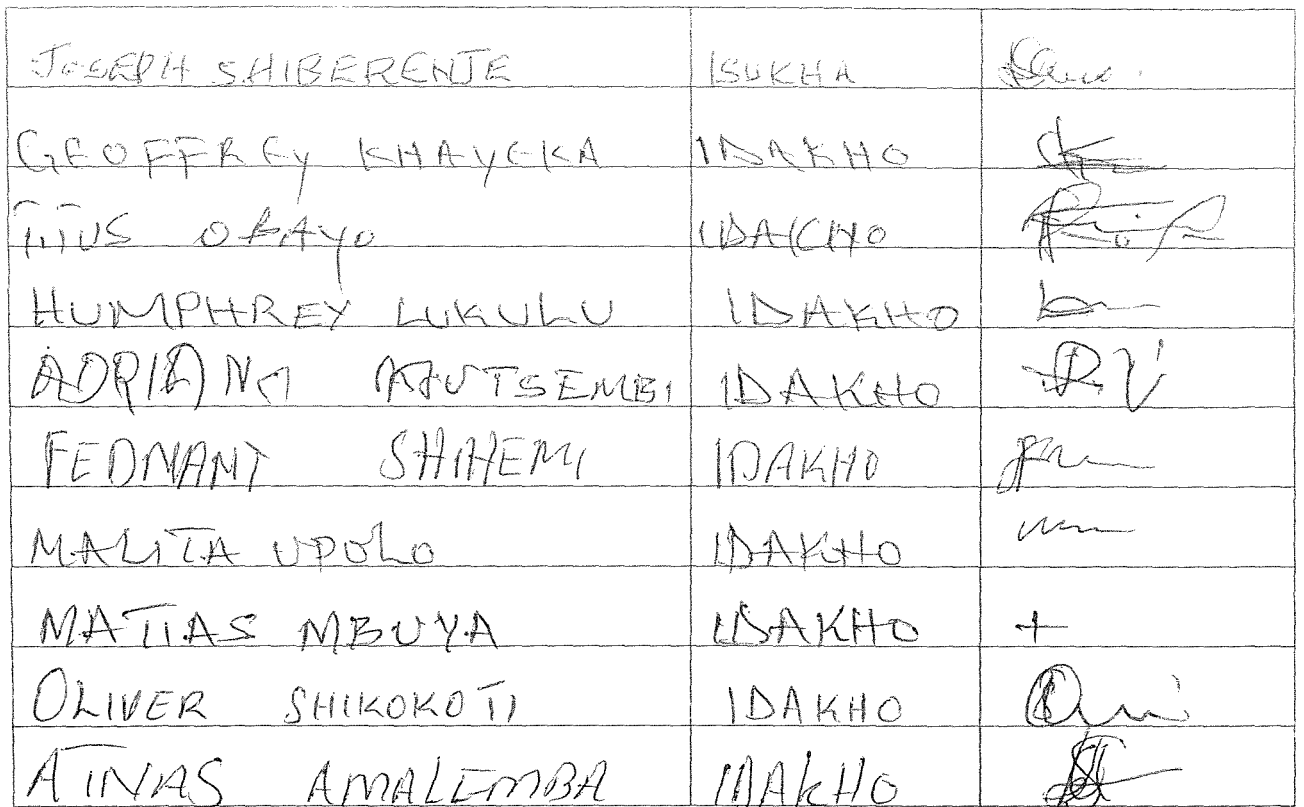 JOSEPH SHIBERENJE ISUKHA
GEOFFREY KHAYEKA IDAKHO
TITUS OBAYO IDAKHO
HUMPHREY LUKULU IDAKHO
ADRIANO KHUTSEMBI IDAKHO
FEDNANT SHIHEMI IDAKHO
MALITA UPOLO IDAKHO
MATIAS MBUYA IDAKHO +
OLIVER SHIKOKOTI IDAKHO
ATINAS AMALEMBA IDAKHO